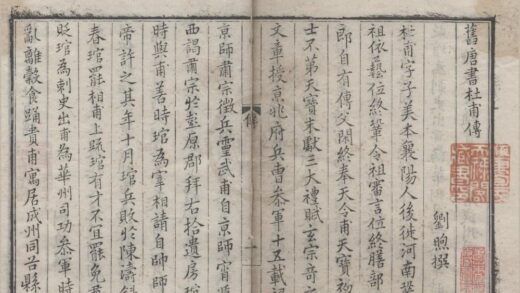 舊唐書杜甫傳
劉煦撰
杜甫字子美本襄陽人後徙河南鞏
祖依藝位終鞏令祖審言位終膳部
郎自有傳父閑終奉天令甫天寶初
士不第天寶末獻三大禮賦玄宗奇
文章授京兆府兵曹參軍十五載
傳
一
京師肅宗徵兵靈武甫自京師宵
西謁肅宗於彭原郡拜右拾遺房
時與甫善時琯為宰相請自帥師
帝許之其年十月琯兵敗於陳濤斜
春琯罷相甫上疏琯有才不宜罷免
貶琯為刺史出甫為華州司功參軍時
亂離穀食踴貴甫寓居成州同谷縣